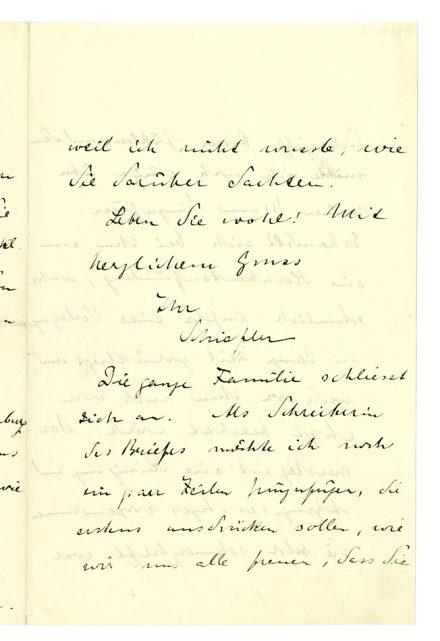 weil ich nicht wusste, wie
Sie darüber dachten.
Leben Sie wohl! Mit
herzlichem Gruss
Ihr
Die ganze Familie schliesst
sich an. Als Schreiberin
des Briefes möchte ich noch
ein paar Zeilen hinzufügen, die
erstens ausdrücken sollen, wie
wir uns alle freuen, dass Sie